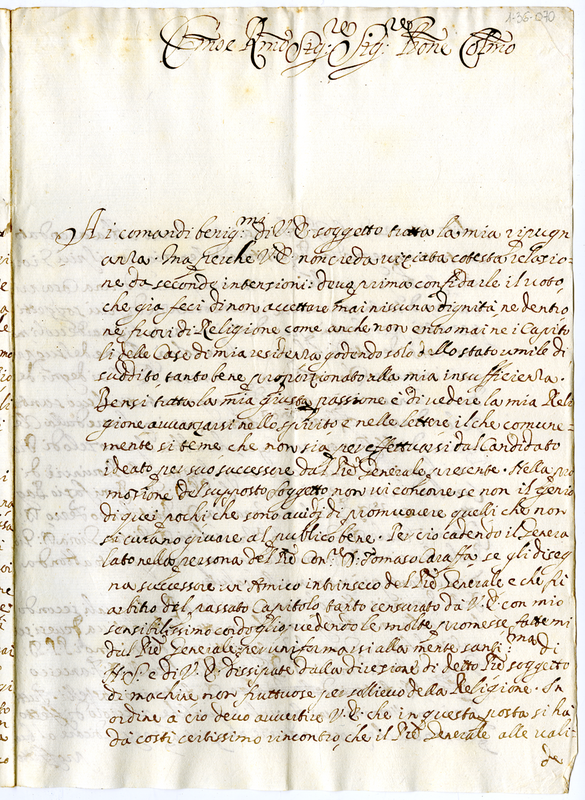 1-36-1270
Emo e Rmo Sig:re Sig:re Prone Colmo
A i comandi benig:mi di V. E. soggetto tutta la mia ripugn
anza. Ma perche V. E. non creda viziata cotesta relazio-
ne da seconde intensioni: devo prima confidarle il voto,
che gia feci di non accettare mai nissuna dignità, ne dentro
ne fuori di Religione come anche non entro mai ne i Capito
li delle Case di mia residenza godendo solo dello stato umile di
suddito tanto bene proporzionato alla mia insufficienza.
Bensi tutta la mia giusta passione è di vedere la mia Reli
gione avvanzarsi nello spirito e nelle lettere il che comune-
mente si teme che non sia per effettuarsi dal Candidato
ideato per suo successere dal Pre Generale presente. Nella pro
mozione del supposto soggetto non vi concorre se non il genio
di quei pochi che sono avidi di promuovere quelli che non
si curano giovare al publico bene. Per cio cadendo il Genera
lato nella persona del Pre Con:re D. Tomaso Carafa se gli diseg
na successore un' Amico intrinseco del Pre Generale e che fù
abito del passato Capitolo tanto censurato da V. E. con mio
sensibilissimo cordoglio, vedendo le molte promesse fattemi
dal Pre Generale per uniformarsi alla mente santi:ma di
N. S. e di V. E. dissipate dalla direzione di detto Pre soggetto
di machine non fruttuose per sollievo della Religione. In
ordine a cio devo avvertire V. E. che in questa posta si hà
da costi certissimo rincontro che il Pre Generale alle vali
de